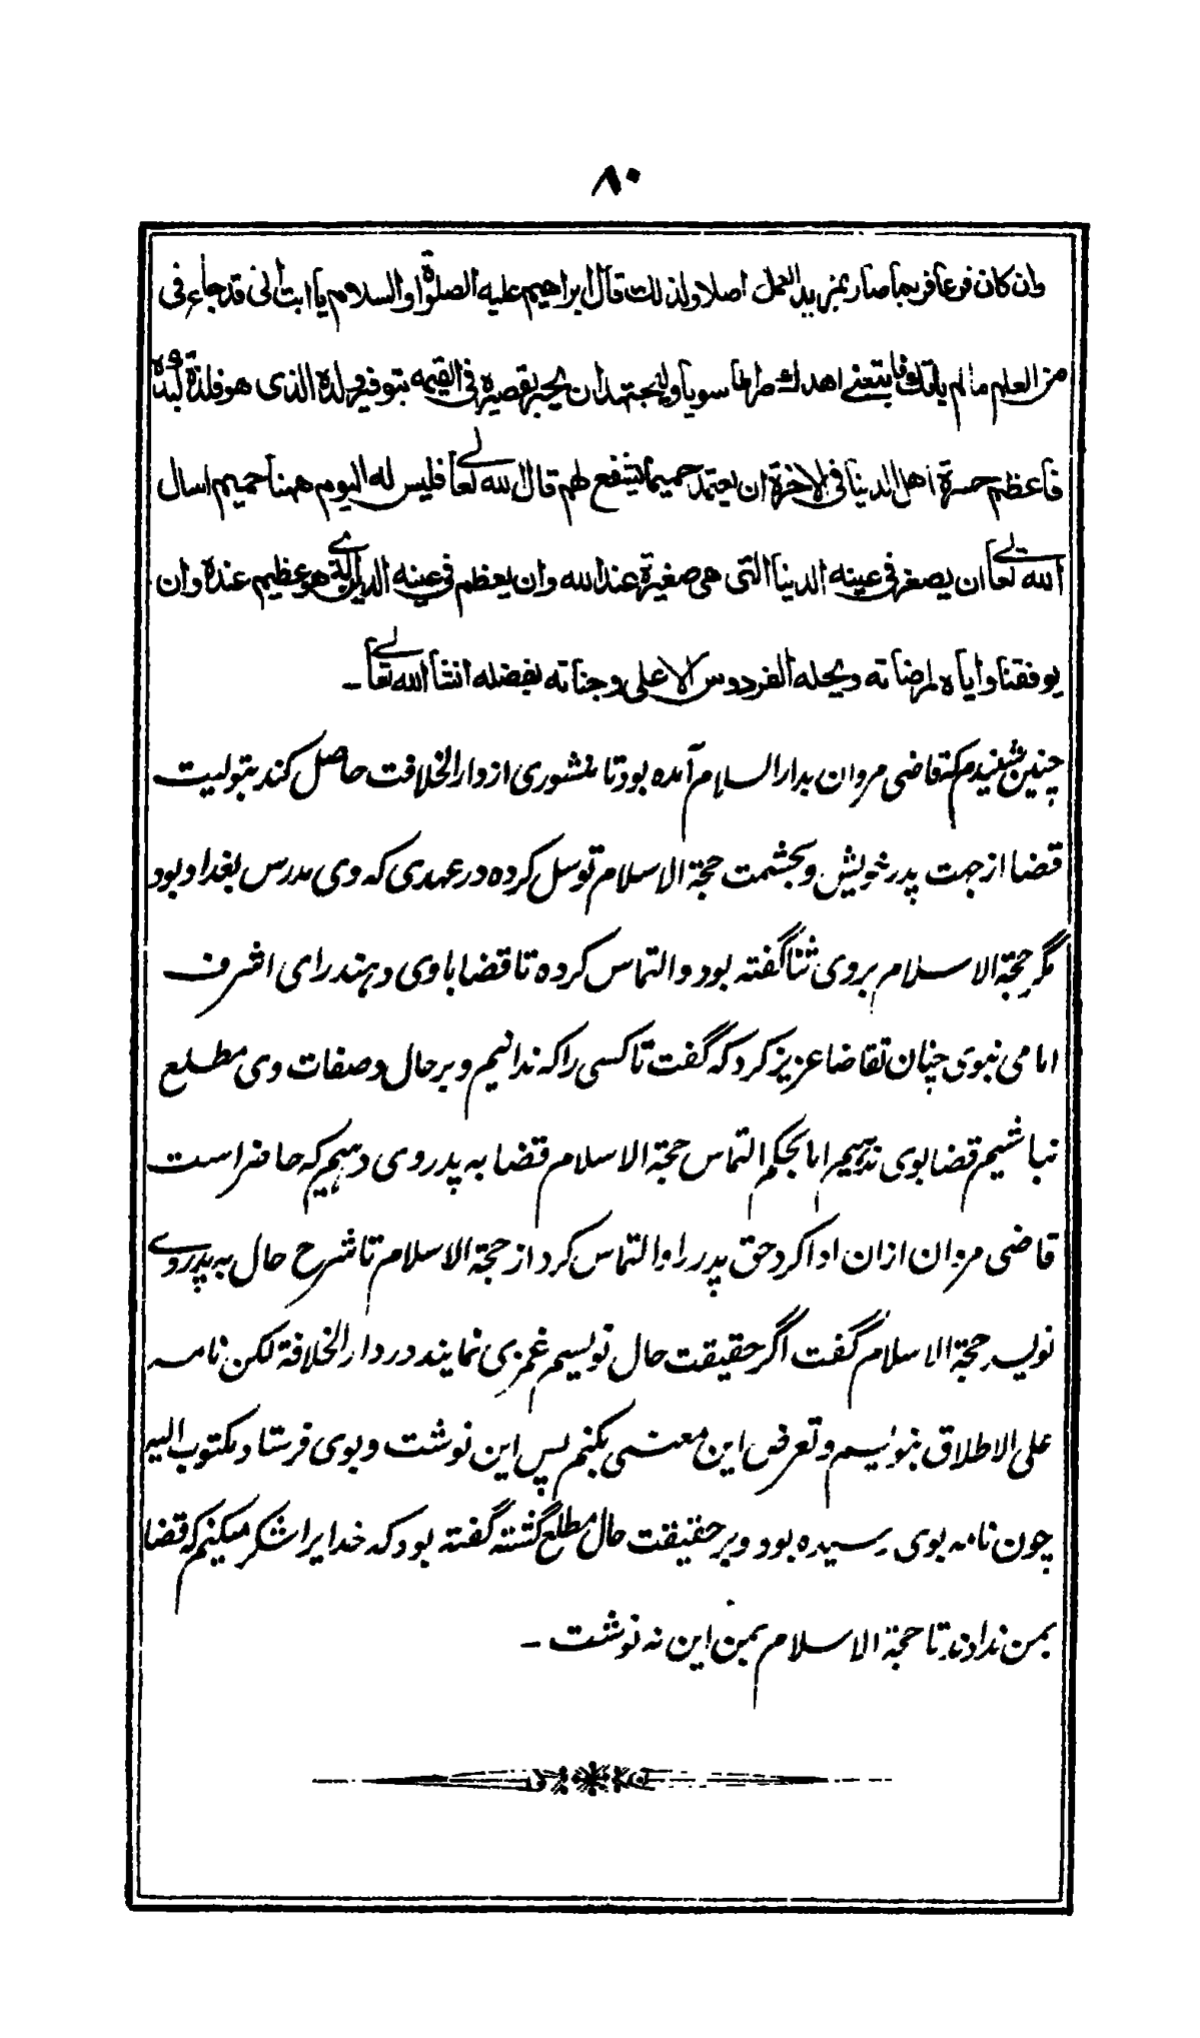 ۸۰
وان كان فرعا فربما صار بمزيد العمل اصلا ولذلك قال ابراهيم عليه الصلوة والسلام يا ابت انى قد جاءنى
من العلم ما لم ياتك فاتبعنى اهدك صراطا سويا وليجتهد ان يجبر تقصيره فى القيمه بتوفير ولده الذى هو فلذة كبده
فاعظم حسرة اهل الدنيا فى الاخرة ان يعتمد حميما ينفع لهم قال الله تعالى فليس له اليوم ههنا حميم اسال
الله تعالى ان يصغر فى عينه الدنيا التى هى صغيرة عند الله وان يعظم فى عينه الدين الذى هو عظيم عنده وان
يوفقنا واياه لمرضاته ويحله الفردوس الاعلى وجناته بفضله انشا الله تعالى ـ
چنين شنيدم كه قاضى مروان بدار السلام آمده بود تا منشورى از دار الخلافت حاصل كند بتوليت
قضا از جهت پدر خويش و بحشمت حجة الاسلام توسل كرده در عهدى كه وى مدرس بغداد بود
مگر حجة الاسلام بروى ثنا گفته بود و التماس كرده تا قضا باوى دهند راى اشرف
امامى نبوى چنان تقاضا عزيز كرد كه گفت تا كسى را كه ندانيم و بر حال و صفات وى مطلع
نباشيم قضا بوى ندهيم اما بحكم التماس حجة الاسلام قضا به پدر وى دهيم كه حاضر است
قاضى مروان ازان ادا كرد حق پدر را و التماس كرد از حجة الاسلام تا شرح حال به پدر وے
نويسد حجة الاسلام گفت اگر حقيقت حال نويسم غمزى نمايند در دار الخلافة لكن نامه
على الاطلاق بنويسم و تعرض اين معنى بكنم پس اين نوشت و بوى فرستاد مكتوب اليه
چون نامه بوى رسيده بود و بر حقيقت حال مطلع گشته گفته بود كه خدايرا شكر ميكنم كه قضا
بمن ندادند تا حجة الاسلام بمن اين نه نوشت ـ